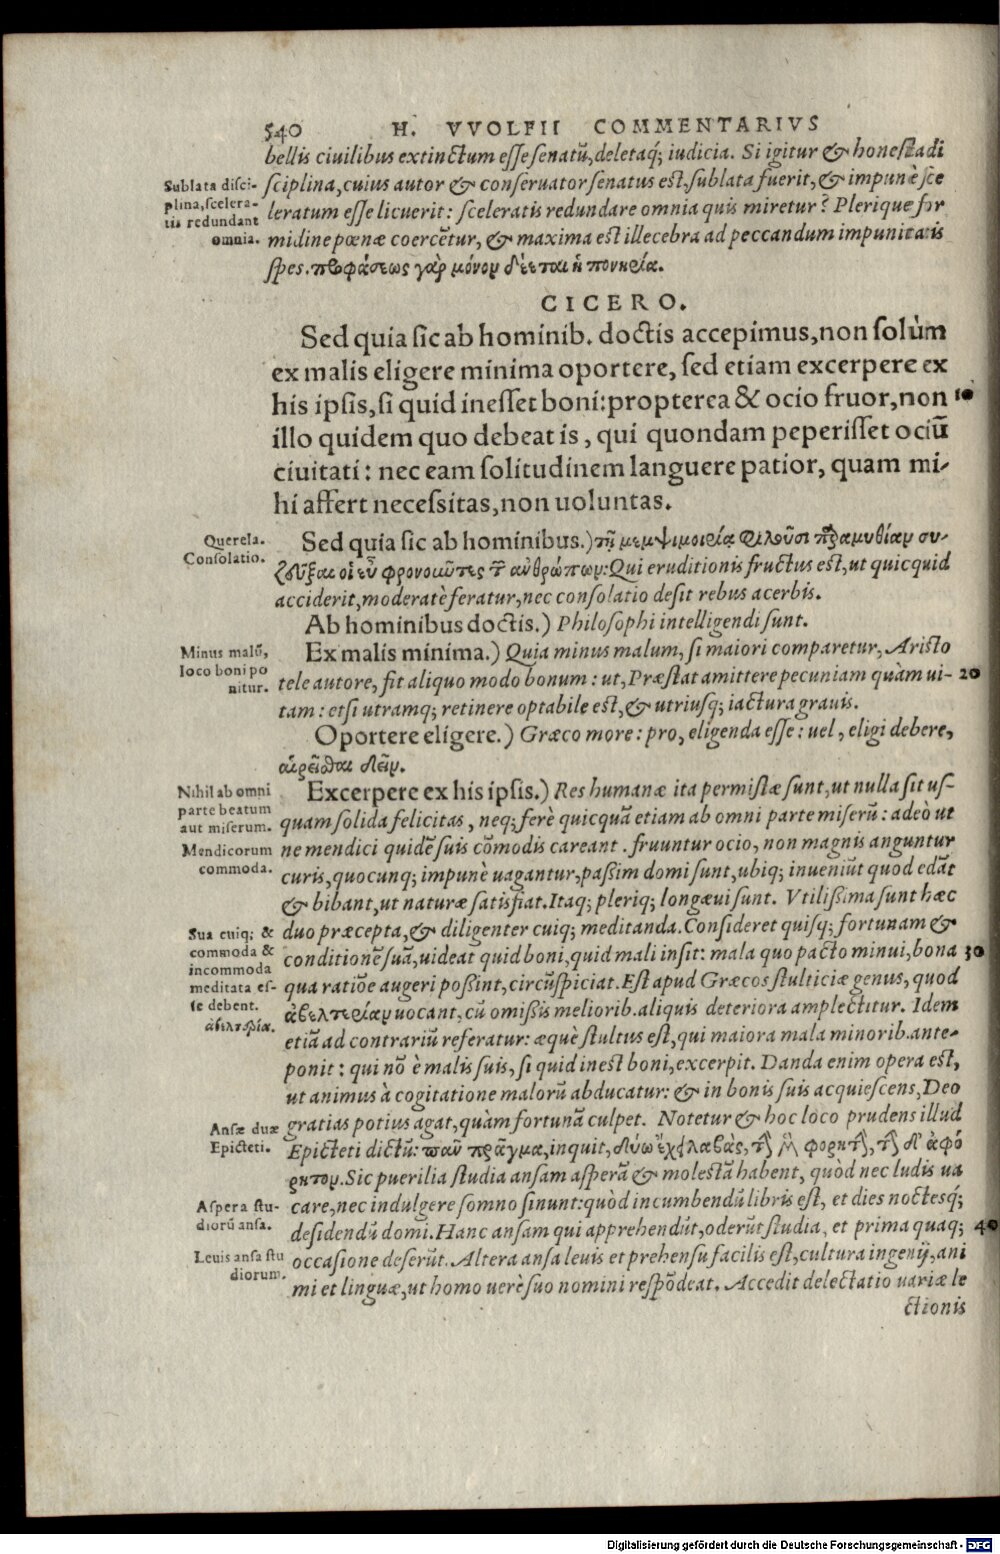 540 H. VVOLFII COMMENTARIVS
bellis ciuilibus extinctum esse senatū, deletaq; iudicia. Si igitur & honesta di
sciplina, cuius autor & conseruator senatus est, sublata fuerit, & impunè sce
leratum esse licuerit: sceleratis redundare omnia quis miretur? Plerique for
midine pœnæ coercētur, & maxima est illecebra ad peccandum impunitatis
spes. προφάσεως γὰρ μόνον δέεται ἡ πονηρία.
Sublata disci-
plina, scelera-
tis redundant
omnia.
CICERO.
Sed quia sic ab hominib. doctis accepimus, non solùm
ex malis eligere minima oportere, sed etiam excerpere ex
his ipsis, si quid inesset boni: propterea & ocio fruor, non 10
illo quidem quo debeat is, qui quondam peperisset ociū
ciuitati: nec eam solitudinem languere patior, quam mi-
hi affert necessitas, non uoluntas.
Querela.
Consolatio.
Sed quia sic ab hominibus.) τῇ μεμψιμοιρίᾳ φιλοῦσι παραμυθίαν συ-
ζεῦξαι οἱ εὖ φρονοῦντες τῶν ἀνθρώπων: Qui eruditionis fructus est, ut quicquid
acciderit, moderatè feratur, nec consolatio desit rebus acerbis.
Ab hominibus doctis.) Philosophi intelligendi sunt.
Minus malū,
loco boni po
nitur.
Ex malis minima.) Quia minus malum, si maiori comparetur, Aristo
tele autore, fit aliquo modo bonum: ut, Præstat amittere pecuniam quàm ui- 20
tam: etsi utramq; retinere optabile est, & utriusq; iactura grauis.
Oportere eligere.) Græco more: pro, eligenda esse: uel, eligi debere,
αἱρεῖσθαι δεῖν.
Nihil ab omni
parte beatum
aut miserum.
Mendicorum
commoda.
Excerpere ex his ipsis.) Res humanæ ita permistæ sunt, ut nulla sit us-
quam solida felicitas, neq; ferè quicquā etiam ab omni parte miserū: adeò ut
ne mendici quidē suis cōmodis careant. fruuntur ocio, non magnis anguntur
curis, quocunq; impunè uagantur, passim domi sunt, ubiq; inueniūt quod edāt
& bibant, ut naturæ satisfiat. Itaq; pleriq; longæui sunt. Vtilissima sunt hæc
duo præcepta, & diligenter cuiq; meditanda. Consideret quisq; fortunam &
conditionē suā, uideat quid boni, quid mali insit: mala quo pacto minui, bona 30
qua ratiōe augeri possint, circūspiciat. Est apud Græcos stulticiæ genus, quod
ἀβελτερίαν uocant, cū omissis meliorib. aliquis deteriora amplectitur. Idem
etiā ad contrariū referatur: æquè stultus est, qui maiora mala minorib. ante-
ponit: qui nō è malis suis, si quid inest boni, excerpit. Danda enim opera est,
ut animus à cogitatione malorū abducatur: & in bonis suis acquiescens, Deo
gratias potius agat, quàm fortunā culpet. Notetur & hoc loco prudens illud
Epicteti dictū: πᾶν πρᾶγμα, inquit, δύω ἔχει λαβὰς, τὴν μὲν φορητὴν, τὴν δ' ἀφό
ρητον. Sic puerilia studia ansam asperā & molestā habent, quòd nec ludis ua
care, nec indulgere somno sinunt: quòd incumbendū libris est, et dies noctesq;
desidendū domi. Hanc ansam qui apprehendūt, oderūt studia, et prima quaq; 40
occasione deserūt. Altera ansa leuis et prehensu facilis est, cultura ingenij, ani
mi et linguæ, ut homo uerè suo nomini respōdeat. Accedit delectatio uariæ le
ctionis
Sua cuiq; &
commoda &
incommoda
meditata es-
se debent.
ἀβελτερία.
Ansæ duæ
Epicteti.
Aspera stu-
diorū ansa.
Leuis ansa stu
diorum.
Digitalisierung gefördert durch die Deutsche Forschungsgemeinschaft - DFG